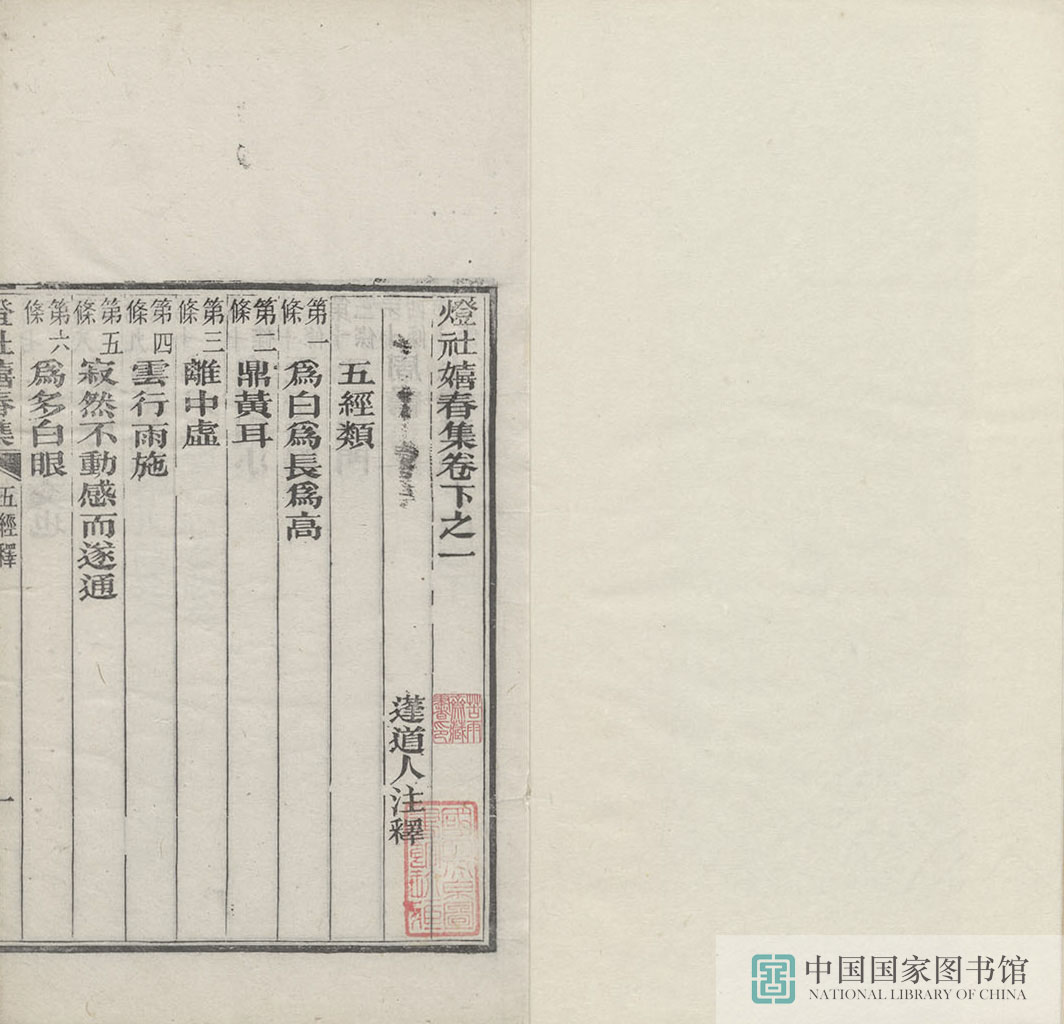 燈社嬉春集卷下之一
蘧道人注釋
五經類
第一條 爲白爲長爲高
第二條 鼎黃耳
第三條 離中虛
第四條 雲行雨施
第五條 寂然不動感而遂通
第六條 爲多白眼
燈社嬉春集 五經釋 一
中国国家图书馆
NATIONAL LIBRARY OF CHINA